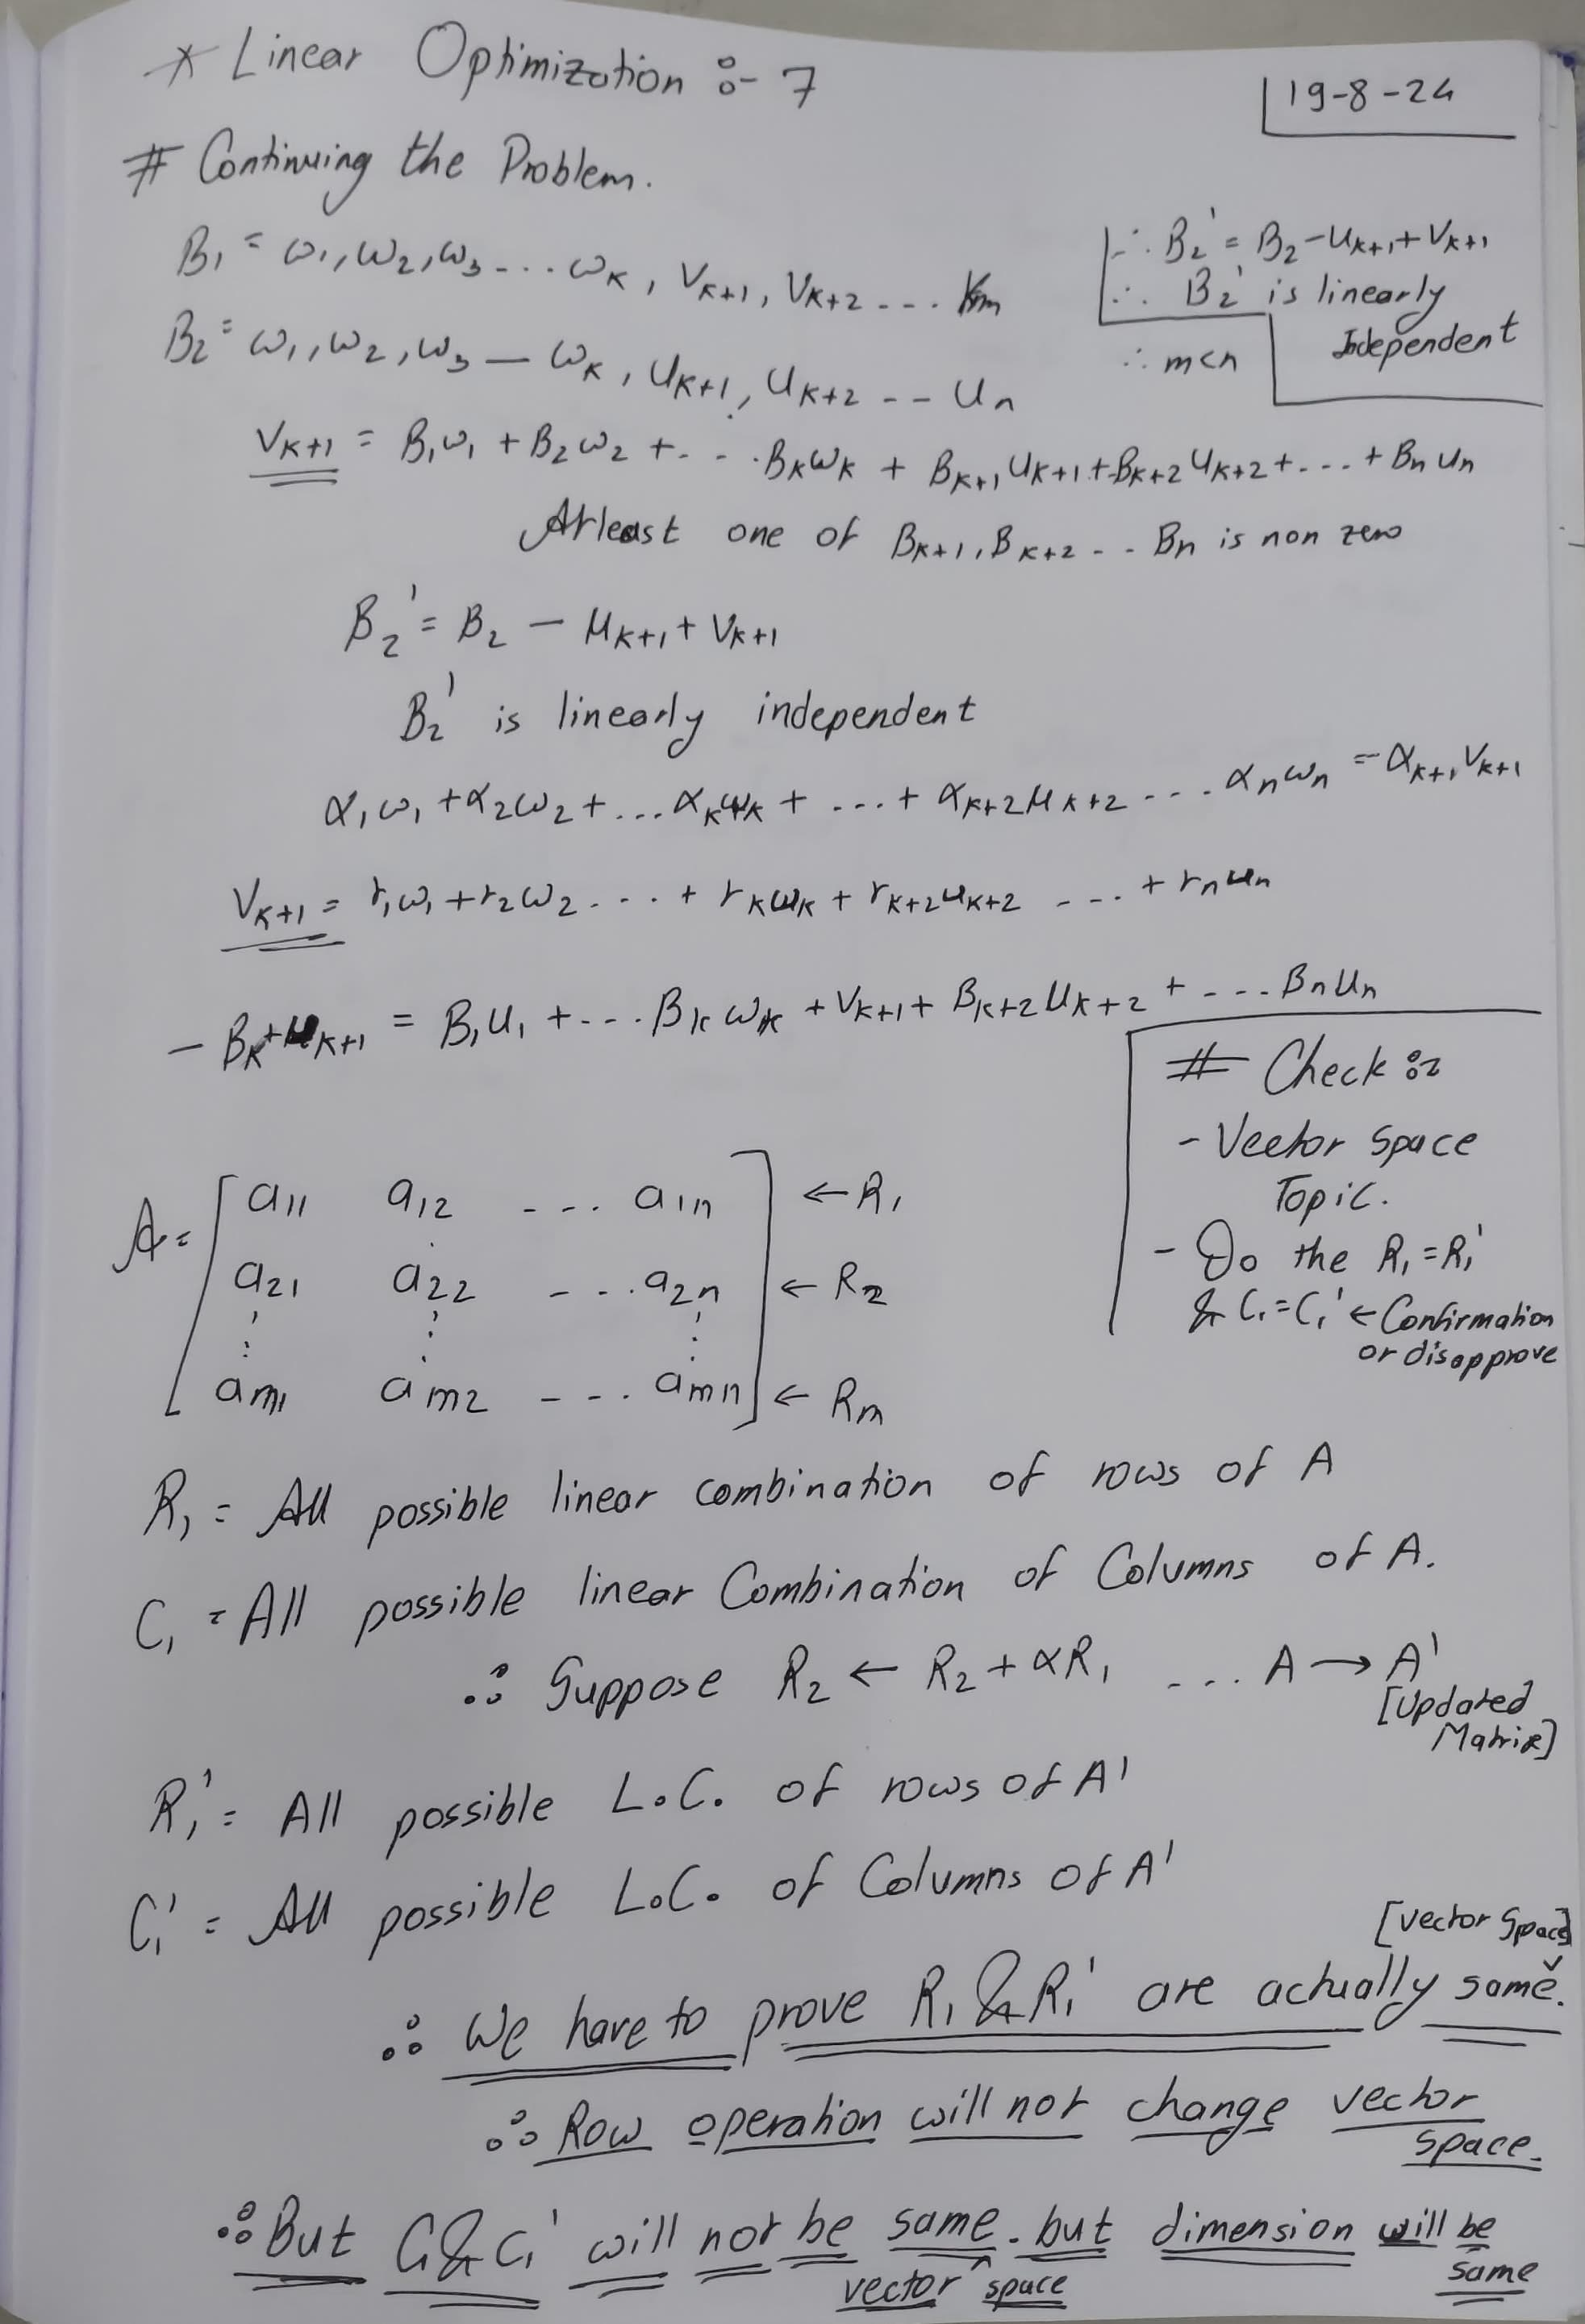 * Linear Optimization :- 7
19-8-24
# Continuing the Problem.
B₁ = ω₁, ω₂, ω₃ - - - ωₖ, Vₖ₊₁, Vₖ₊₂ - - - Vₘ
B₂ = ω₁, ω₂, ω₃ — ωₖ, Uₖ₊₁, Uₖ₊₂ - - Uₙ
∴ B₂' = B₂ - Uₖ₊₁ + Vₖ₊₁
∴ B₂' is linearly
Independent
∴ m<n
Vₖ₊₁ = B₁ω₁ + B₂ω₂ + - - · Bₖωₖ + Bₖ₊₁Uₖ₊₁ + Bₖ₊₂Uₖ₊₂ + - - - + BₙUₙ
Atleast one of Bₖ₊₁, Bₖ₊₂ - - Bₙ is non zero
B₂' = B₂ - μₖ₊₁ + Vₖ₊₁
B₂' is linearly independent
α₁ω₁ + α₂ω₂ + ... αₖωₖ + ... + αₖ₊₂μₖ₊₂ - - - αₙωₙ = -αₖ₊₁Vₖ₊₁
Vₖ₊₁ = r₁ω₁ + r₂ω₂ - - - + rₖωₖ + rₖ₊₂uₖ₊₂ - - - + rₙuₙ
- Bₖ₊ μₖ₊₁ = B₁U₁ + - - - Bₖωₖ + Vₖ₊₁ + Bₖ₊₂Uₖ₊₂ + - - - BₙUₙ
# Check :-
- Vector Space
Topic.
- Do the R₁ = R₁'
& C₁ = C₁' ← Confirmation
or disapprove
A = [ a₁₁ a₁₂ - - - a₁ₙ ] ← R₁
a₂₁ a₂₂ - - - a₂ₙ ← R₂
⋮ ⋮ ⋮
aₘ₁ aₘ₂ - - - aₘₙ ← Rₘ
R₁ = All possible linear combination of rows of A
C₁ = All possible linear Combination of Columns of A.
∴ Suppose R₂ ← R₂ + αR₁ - - - A → A'
[Updated
Matrix]
R₁' = All possible L.C. of rows of A'
C₁' = All possible L.C. of Columns of A'
[Vector Space]
∴ We have to prove R₁ & R₁' are actually same.
∴ Row operation will not change vector
space.
∴ But C₁ & C₁' will not be same. but dimension will be
same
vector space